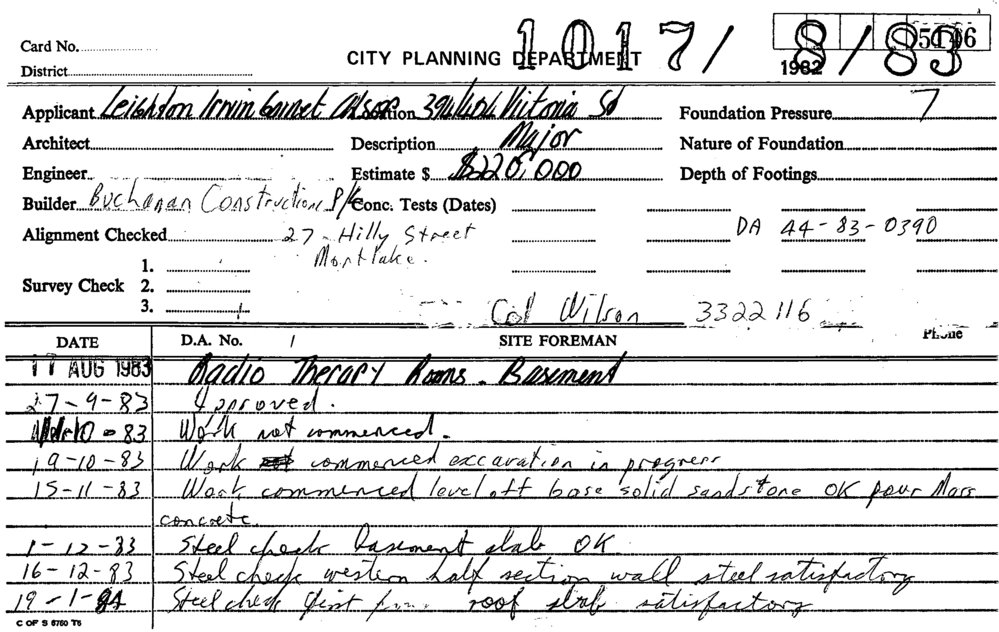 1017/8/83
5166
Card No.
CITY PLANNING DEPARTMENT
1982
District
Applicant Leighton Irwin Garnet Alsop Location 394/404 Victoria St Foundation Pressure 7
Architect Description Major Nature of Foundation
Engineer Estimate $ $220,000 Depth of Footings
Builder Buchanan Constructions P/L Conc. Tests (Dates)
Alignment Checked 27 - Hilly Street DA 44-83-0390
Mortlake.
1.
Survey Check 2.
3.
Col Wilson 3322116
DATE D.A. No. / SITE FOREMAN Phone
17 AUG 1983 Radio Therapy Rooms - Basement
27-9-83 Approved.
10-83 Work not commenced.
19-10-83 Work commenced excavation in progress
15-11-83 Work commenced level off base solid sandstone OK pour Mass
concrete.
1-12-83 Steel check basement slab OK
16-12-83 Steel check western half section wall steel satisfactory
19-1-84 Steel check roof slab satisfactory
C OF S 6760 T5